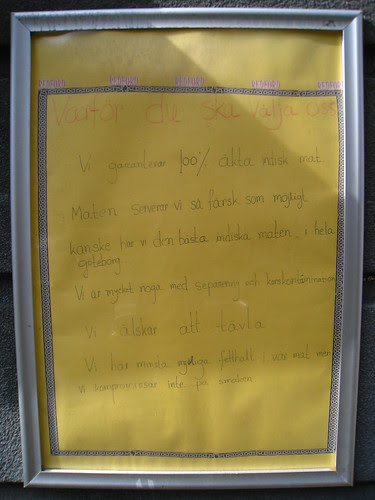 BEDFORD BEDFORD BEDFORD BEDFORD BEDFORD
varför du ska välja oss
Vi garanterar 100% äkta indisk mat.
Maten serverar vi så färsk som möjligt
kanske har vi den bästa indiska maten i hela
göteborg
Vi är mycket noga med separering och korskontamination
Vi älskar att tävla
Vi har minsta möjliga fetthalt i vår mat men
vi kompromissar inte på smaken